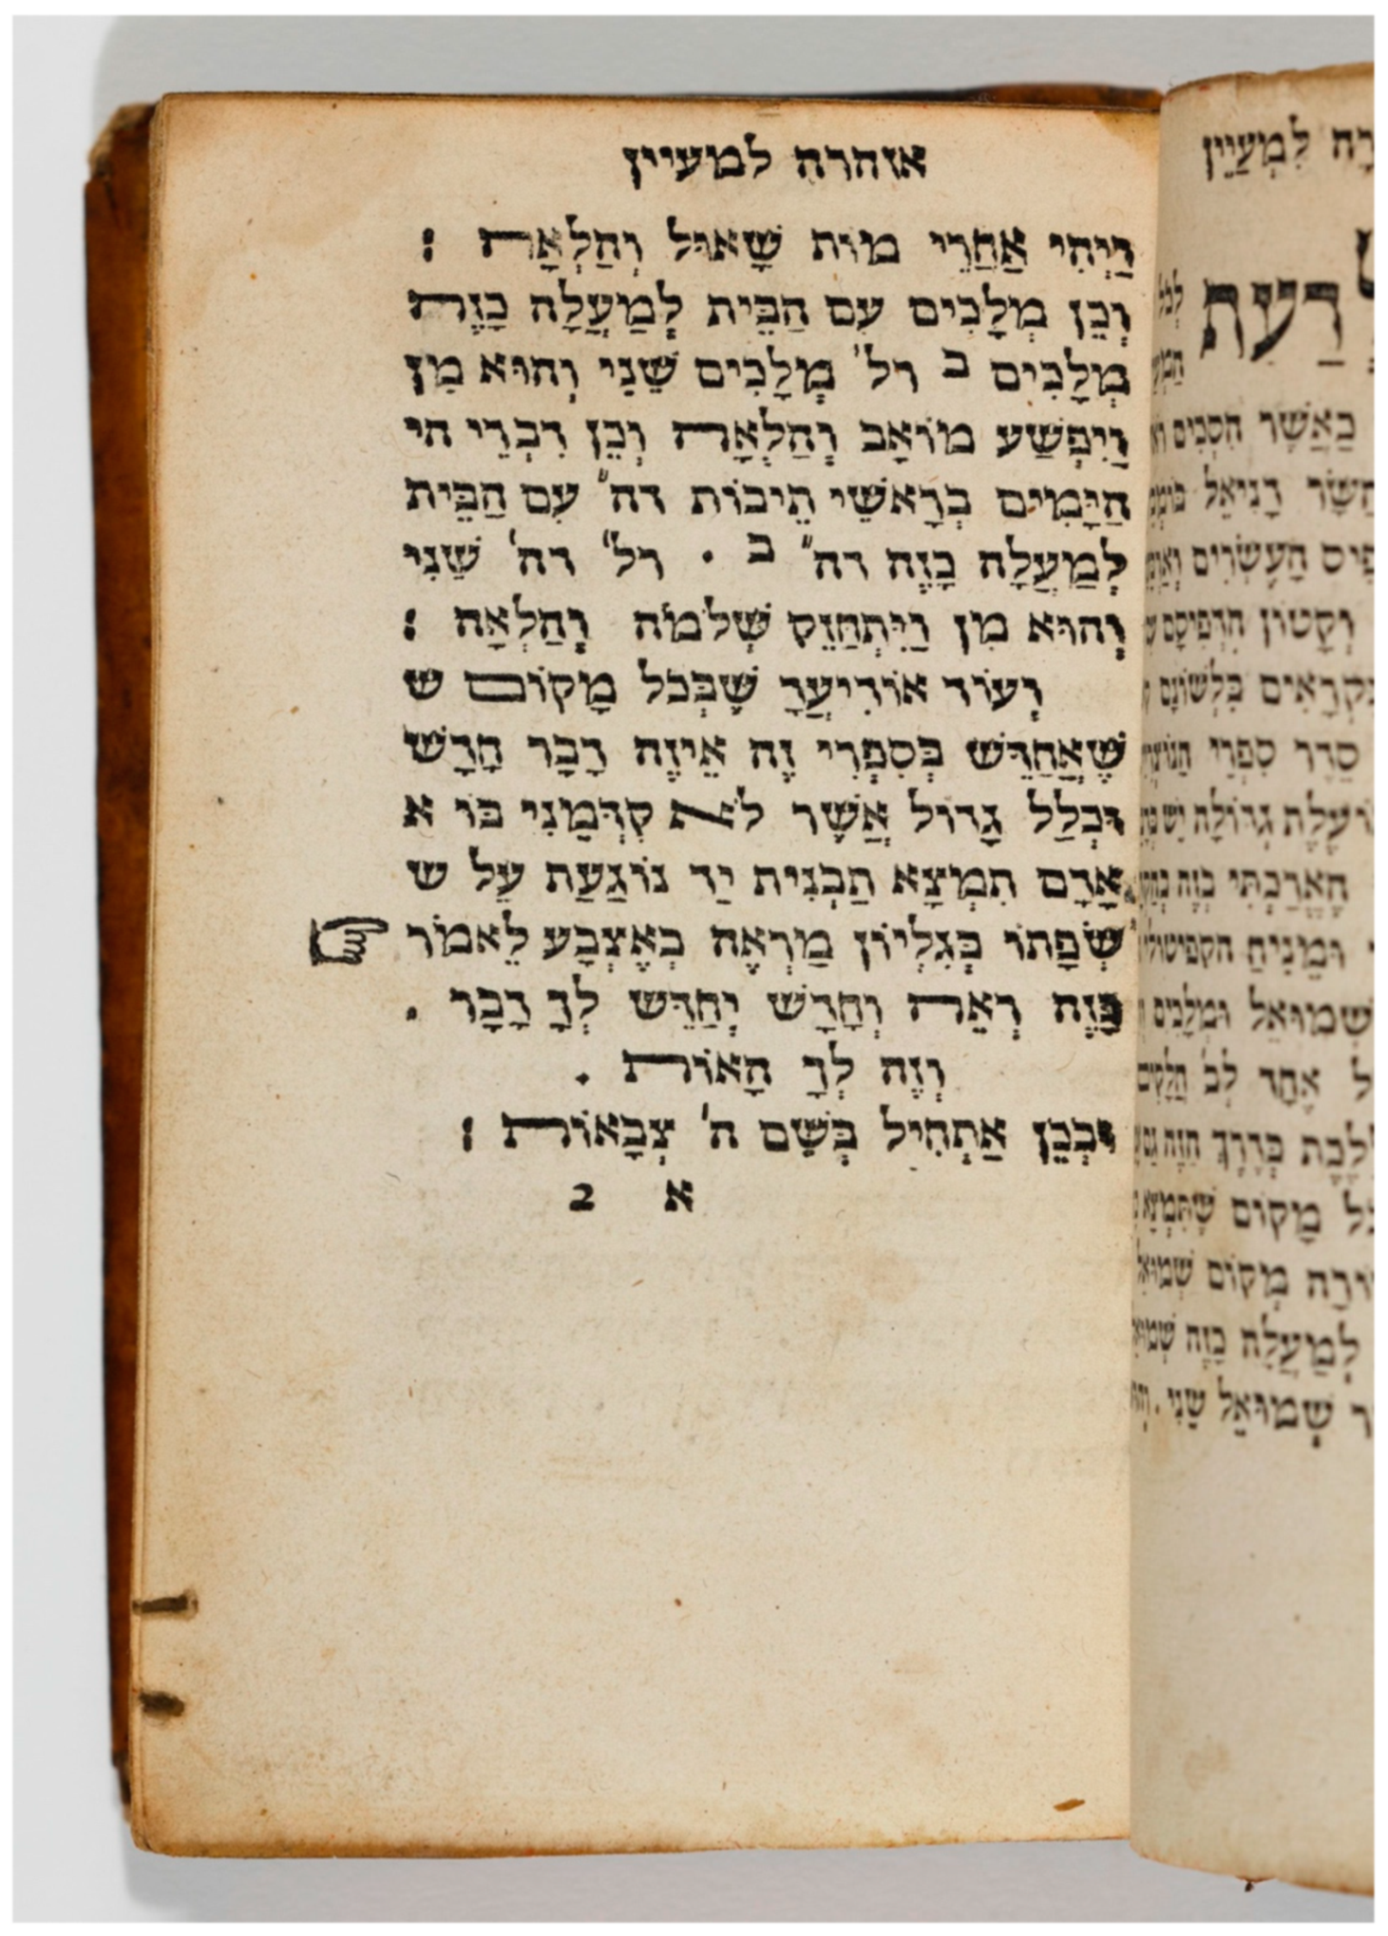 אזהרה למעיין
וַיְהִי אַחֲרֵי מוֹת שָׁאוּל וְהַלְאָה :
וְכֵן מְלָכִים עִם הַבֵּית לְמַעֲלָה כָּזֶה
מְלָכִים ב רל' מְלָכִים שֵׁנִי וְהוּא מִן
וַיִּפְשַׁע מוֹאָב וְהַלְאָה וְכֵן דִּבְרֵי הי
הַיָּמִים בְּרָאשֵׁי תֵיבוֹת דה" עִם הַבֵּית
לְמַעֲלָה כָּזֶה דה" ב . רל' דה' שֵׁנִי
וְהוּא מִן וַיִּתְחַזֵּק שְׁלֹמֹה וְהַלְאָה :
וְעוֹד אוֹדִיעֲךָ שֶׁבְּכל מָקוֹם ש
שֶׁאֲחַדֵּשׁ בְּסִפְרִי זֶה אֵיזֶה דָבָר חָדָשׁ
וּכְלַל גָּדוֹל אֲשֶׁר לֹא קִדְּמָנִי בּוֹ א
אָדָם תִּמְצָא תַבְנִית יַד נוֹגַעַת עַל ש
שְׂפָתוֹ בְּגִלְיוֹן מַרְאֶה בְאֶצְבָּע לֵאמֹר
כָּזֶה רְאֵה וְחָדָשׁ יְחַדֵּשׁ לְךָ דָבָר .
וְזֶה לְךָ הָאוֹת .
וּבְכֵן אַתְחִיל בְּשֵׁם ה' צְבָאוֹת :
א 2
רָה לִמְעַיֵּין
דַעַת
כַּאֲשֶׁר
דָנִיאֵל
הָעֶשְׂרִים
וְקָטוֹן
סֵדֶר סִפְרֵי
גְדוֹלָה
הֶאֱרַכְתִּי
וּמַנִּיחַ
שְׁמוּאֵל וּמְלָכִים
אֶחָד לְב
בְּדֶרֶךְ הַזֶּה
מָקוֹם
מְקוֹם
לְמַעֲלָה כָּזֶה
שְׁמוּאֵל שֵׁנִי .